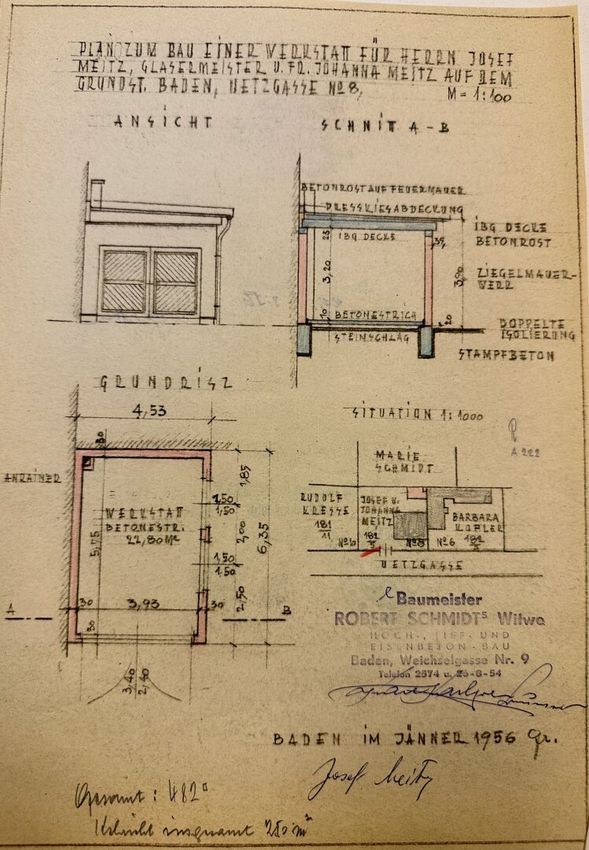 PLAN ZUM BAU EINER WERKSTATT FÜR HERRN JOSEF
MEITZ, GLASERMEISTER U. FR. JOHANNA MEITZ AUF DEM
GRUNDST. BADEN, UETZGASSE No 8,
M = 1:100
ANSICHT
SCHNITT A-B
BETONROST AUF FEUERMAUER
PRESSKIESABDECKUNG
IBG DECKE
BETONROST
25
IBG DECKE
35
3,20
3,90
ZIEGELMAUER-
WERK
10
BETONESTRICH
20
STEINSCHLAG
DOPPELTE
ISOLIERUNG
STAMPFBETON
GRUNDRISZ
4,53
SITUATION 1:1000
A 222
30
MARIE
SCHMIDT
ANRAINER
1,85
1,50
1,50
WERKSTATT
BETONESTR.
22,80 M²
5,75
2,00
6,35
1,50
1,50
2,50
RUDOLF
KRESSE
181
11
No 10
JOSEF U.
JOHANNA
MEITZ
182
No 8
BARBARA
KOFLER
182
No 6
UETZGASSE
A
30
3,93
30
B
30
3,40
2,40
Baumeister
ROBERT SCHMIDTs Witwe
HOCH-, TIEF- UND
EISENBETON-BAU
Baden, Weichselgasse Nr. 9
Telefon 2574 u. 26-8-54
BADEN IM JÄNNER 1956
Josef Meitz
Gesamt: 482
insgesamt 280 m²